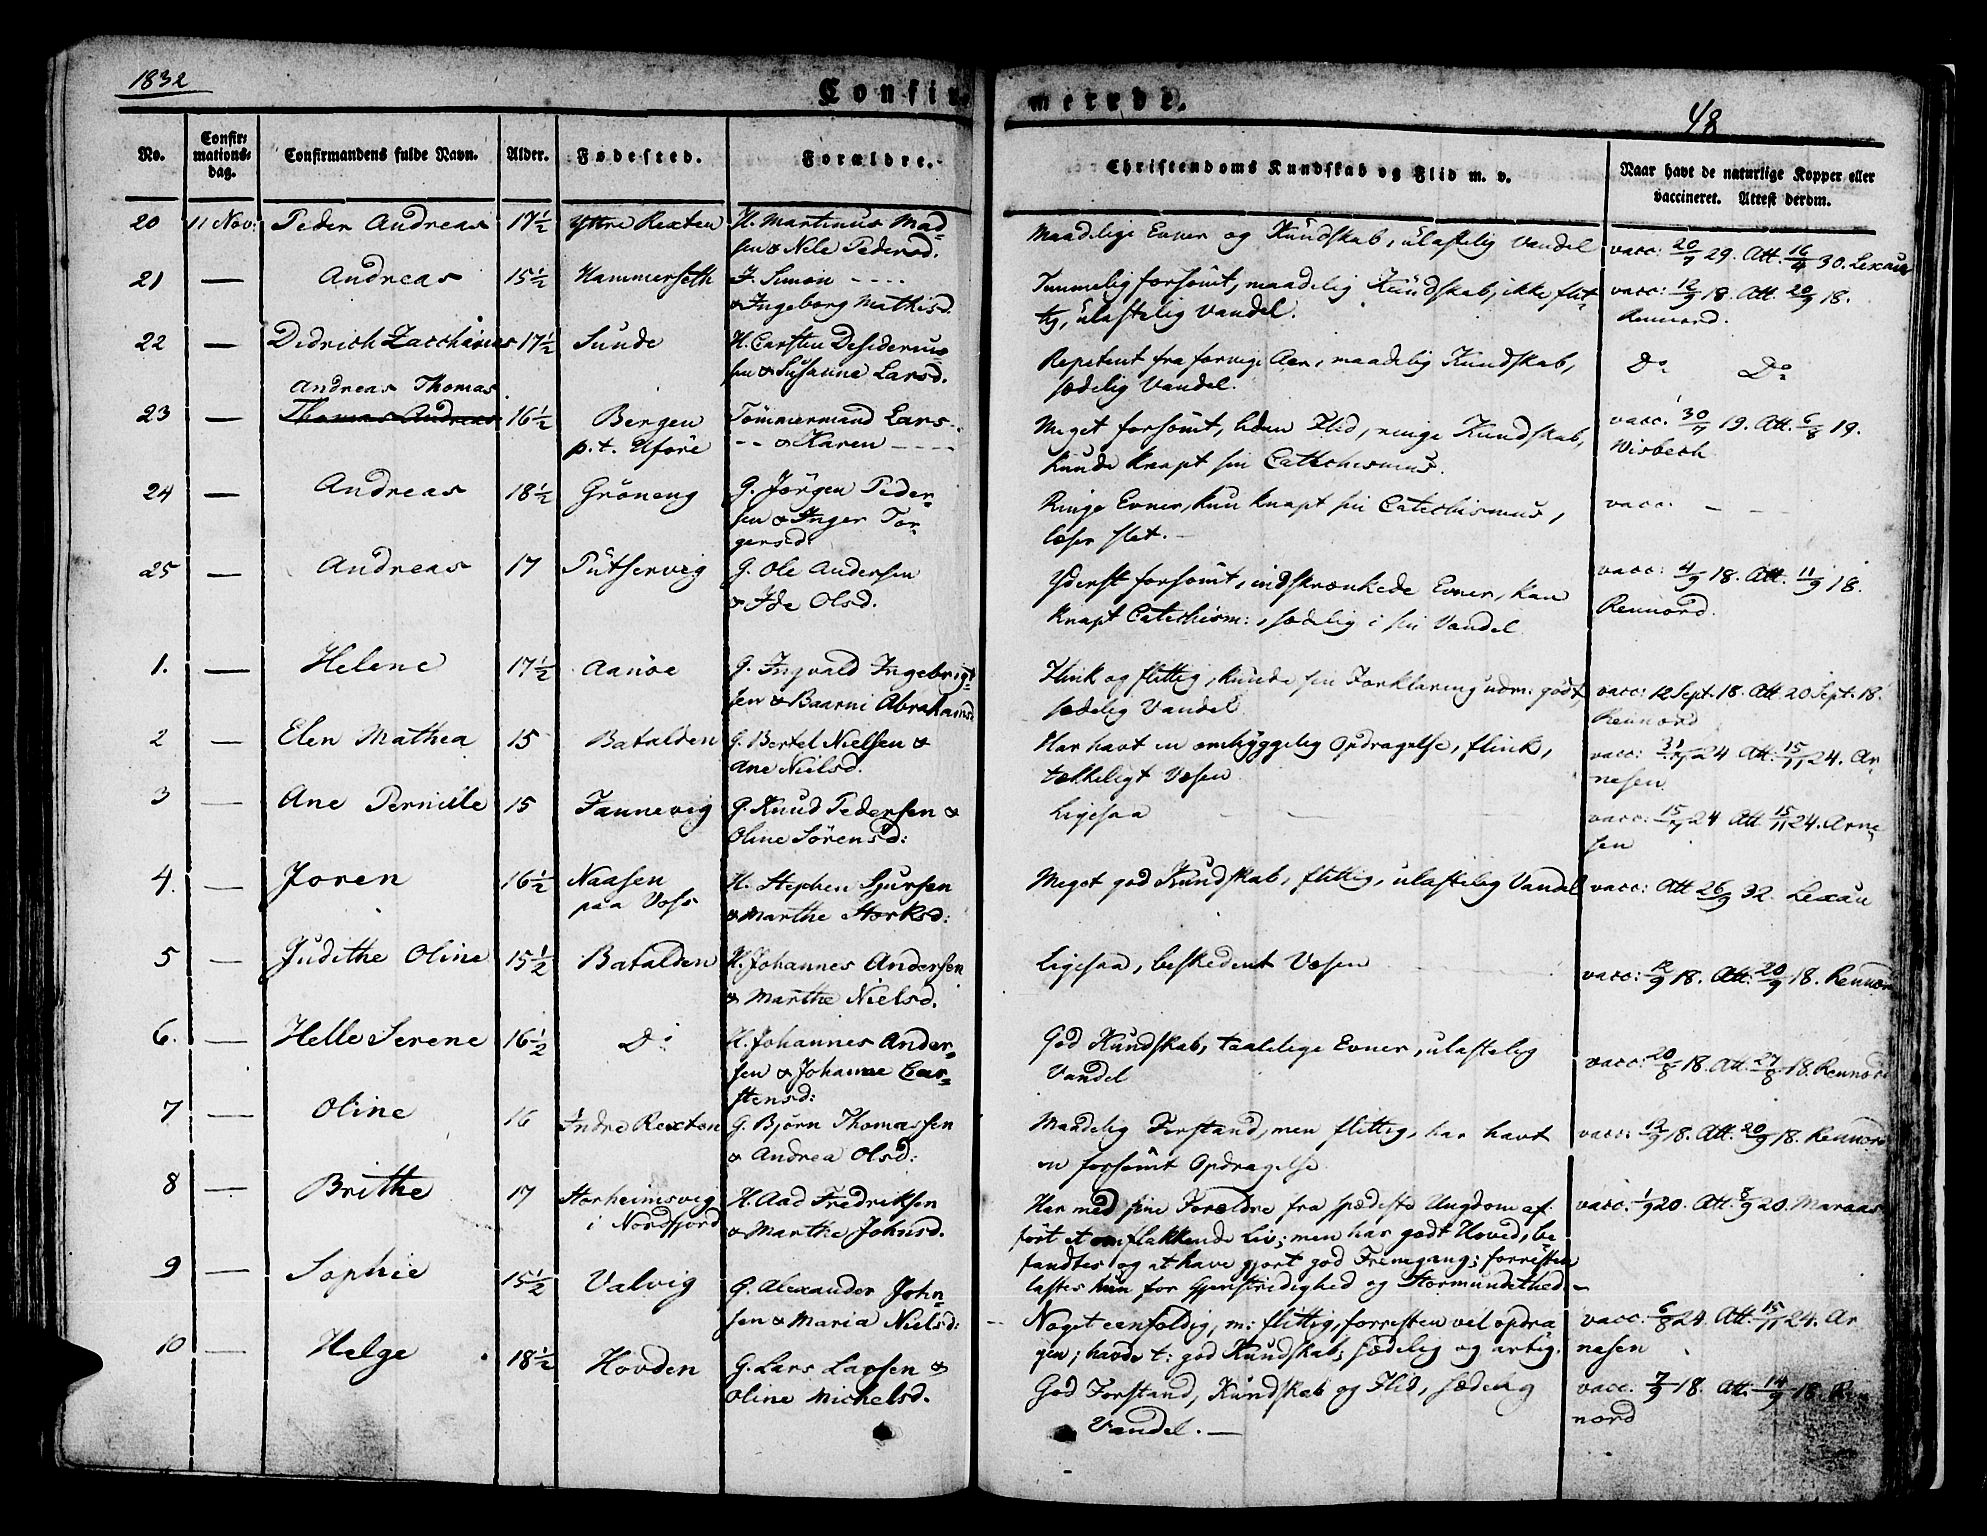 1832
Confirmerede.
48
No. Confirmationsdag. Confirmandens fulde Navn. Alder. Fødested. Forældre. Christendoms Kundskab og Flid m. v. Naar havt de naturlige Kopper eller vaccineret. Attest derom.
20 11 Nov: Peder Andreas 17½ Yttre Rexten H. Martinus Mad-
sen & Nele Pedersd.
Maadelige Evner og Kundskab, ulastelig Vandel
vacc: 20/7 29. Att. 16/4 30. Lexau
21 — Andreas 15½ Hammerseth J. Simon - - - -
& Ingeborg Mathisd.
Temmelig forsömt, maadelig Kundskab, ikke flit-
tig, ulastelig Vandel.
vacc: 12/9 18. Att. 20/9 18.
Rennord.
22 — Didrich Zacharias 17½ Sunde H. Carsten Desiderius
sen & Susanne Larsd.
Repetent fra forrige Aar, maadelig Kundskab,
sædelig Vandel.
Do Do
Andreas Thomas.
23 — Thomas Andreas 16½ Bergen
p.t. Uföre
Tömmermand Lars - -
- - & Karen - - - -
Meget forsömt, liden Flid, ringe Kundskab,
kunde knapt sin Catechismus.
vacc: 30/7 19. Att. 6/8 19.
Wisbech.
24 — Andreas 18½ Gröneng G. Jörgen Peder-
sen & Inger Tor-
gersd:
Ringe Evner, kun knapt sin Catechismus,
læser slet. —
vacc. — —
25 — Andreas 17 Pütservig G. Ole Andersen
& Ide Olsd.
Yderst forsömt, indskrænkede Evner, kan
knapt Catechism:, sædelig i sin Vandel
vacc: 4/9 18. Att. 11/9 18.
Rennord.
1. — Helene 17½ Aanöe G. Ingvald Ingebrigt-
sen & Baarni Abrahamsd
Flink og flittig, kunde sin Forklaring udm: godt,
sædelig Vandel
vacc: 12 Sept. 18. Att. 20 Sept. 18.
Rennord
2 — Elen Mathea 15 Batalden G. Bertel Nielsen &
Ane Nielsd.
Har havt en omhyggelig Opdragelse, flink,
tækkeligt Væsen
24 Att. 15/11 24. Ar-
nesen
3 — Ane Pernille 15 Fannevig G. Knud Pedersen &
Oline Sörensd:
Ligesaa — — —
24 Att 15/11 24. Arne-
sen
4. — Joren 16½ Naasen
paa Voss
H. Stephen Sjursen
& Marthe Storksd:
Meget god Kundskab, flittig, ulastelig Vandel
vacc: Att 26/9 32. Lexau
5 — Judithe Oline 15½ Batalden H. Johannes Andersen
& Marthe Nielsd.
Ligesaa, beskedent Væsen
vacc: 12/9 18. Att. 20/9 18. Rennord
6. — Helle Serene 16½ Do H. Johannes Ander-
sen & Johanne Car-
stensd:
God Kundskab, taalelige Evner, ulastelig
Vandel
vacc: 20/8 18. Att. 27/8 18. Rennord
7 — Oline 16 Indre Rexten G. Björn Thomassen
& Andrea Olsd:
Maadelig Forstand, men flittig, har havt
en forsömt Opdragelse
vacc: 12/9 18. Att. 20/9 18. Rennord
8 — Brithe 17 Storheimsvig
i Nordfjord
H. Aad Fredriksen
& Marthe Johnsd.
Har med sine Forældre fra spædeste Ungdom af
fört et omflakkende Liv; men har godt Hoved, be-
fandtes og at have gjort god Fremgang; forresten
lastes hun for Gjenstridighed og Stormundethed —
vacc. 1/9 20. Att. 8/9 20. Maraas
9 — Sophie 15½ Valvig G. Alexander John-
sen & Maria Nielsd:
Noget eenfoldig, m: flittig, forresten vel opdra
gen; havde t: god Kundskab, sædelig og artig.
vacc. 6/8 24. Att. 15/11 24. Ar
nesen
10 — Helge 18½ Hovden G. Lars Larsen &
Oline Michelsd.
God Forstand, Kundskab og Flid, sædelig
Vandel. —
vacc. 7/9 18. Att. 14/9 18. Ren
nord